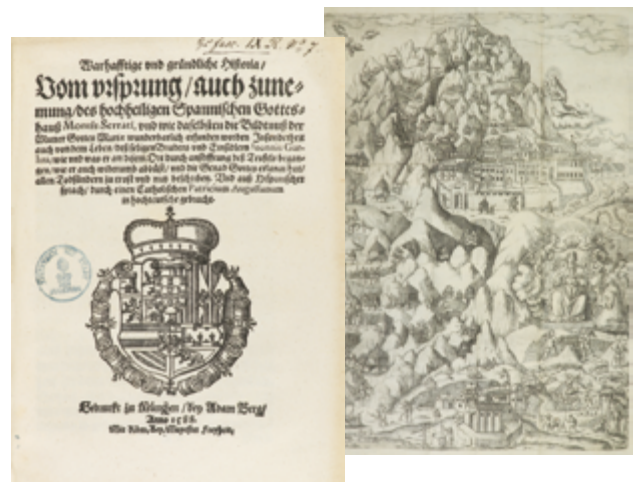 Warhafftige vnd gründliche Historia /
Vom vrsprung / auch zune-
mung / des hochheiligen Spannischen Gottes-
hauß Montis Serrati, vnd wie daselbsten die Bildtnuß der
Mutter Gottes Marie wunderbarlich erfunden worden Insonderheit
auch von dem Leben deß seligen Bruders vnd Einsidlem Joannis Gua-
wie vnd was er an disem Ort durch anstifftung deß Teuffels began-
gen / wie er auch widerumb abbüst / vnd die Genad Gottes erlanget hat /
allen Todsündern zu trost vnd nutz beschriben. Vnd auß Hispanischer
sprach / durch einen Catholischen Patricium Augustanum
in hochteutsche gebracht.
Gedruckt zu München / bey Adam Berg /
Anno 1588.
Mit Röm. Key. Mayestet Freyheit.